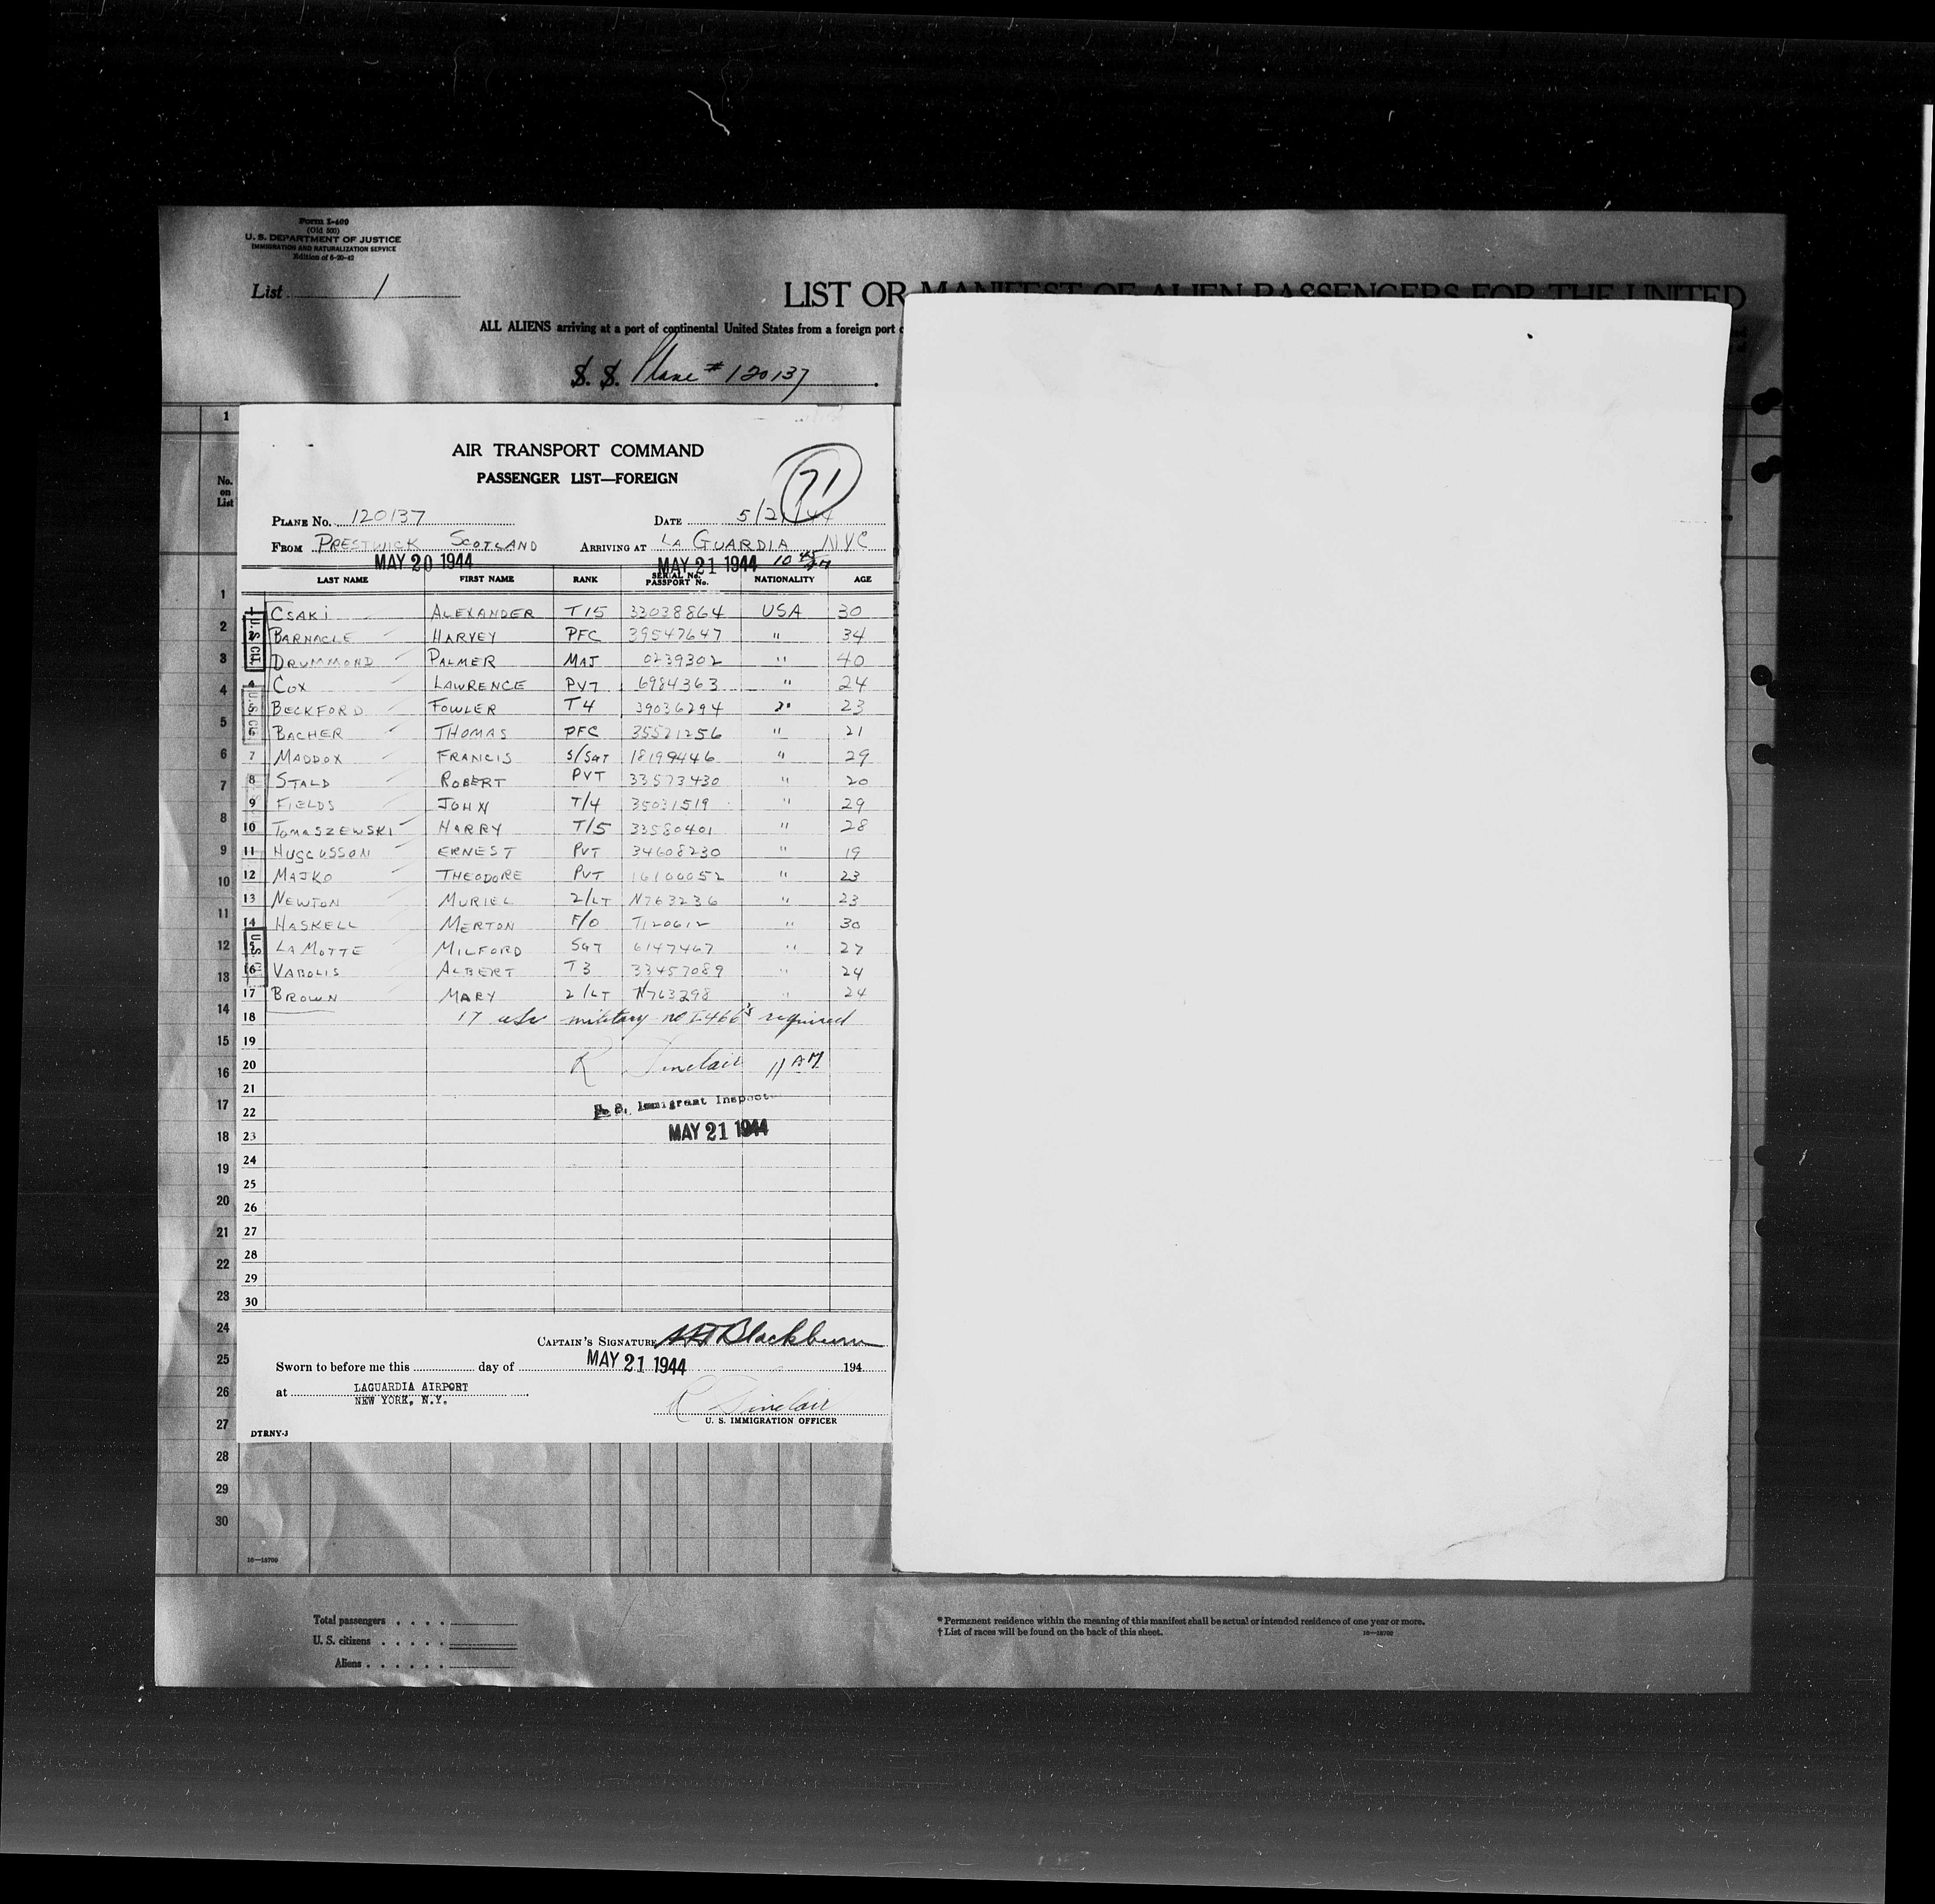 Form I-409
(Old 500)
U. S. DEPARTMENT OF JUSTICE
IMMIGRATION AND NATURALIZATION SERVICE
Edition of 6-20-42
List 1
LIST OR MANIFEST OF ALIEN PASSENGERS FOR THE UNITED
ALL ALIENS arriving at a port of continental United States from a foreign port
S. S. Plane # 120137
No. on List
AIR TRANSPORT COMMAND
PASSENGER LIST—FOREIGN
71
PLANE No. 120137 DATE 5/21/44
FROM PRESTWICK SCOTLAND ARRIVING AT LA GUARDIA NYC
MAY 20 1944 MAY 21 1944 10 45 AM
LAST NAME FIRST NAME RANK SERIAL No. PASSPORT No. NATIONALITY AGE
1 CSAKI ALEXANDER T15 33038864 USA 30
2 BARNACLE HARVEY PFC 39547647 " 34
3 DRUMMOND PALMER MAJ 0239302 " 40
4 COX LAWRENCE PVT 6984363 " 24
5 BECKFORD FOWLER T4 39036294 " 23
6 BACHER THOMAS PFC 35521256 " 21
7 MADDOX FRANCIS S/SGT 18199446 " 29
8 STALD ROBERT PVT 33573430 " 20
9 FIELDS JOHN T/4 35031519 " 29
10 TOMASZEWSKI HARRY T/5 33580401 " 28
11 HUSCUSSON ERNEST PVT 34608230 " 19
12 MAJKO THEODORE PVT 16100052 " 23
13 NEWTON MURIEL 2/LT N763236 " 23
14 HASKELL MERTON F/O T120612 " 30
15 LA MOTTE MILFORD SGT 6147467 " 27
16 VABOLIS ALBERT T3 33457089 " 24
17 BROWN MARY 2/LT N763298 " 24
18 17 usc military no I-466's required
19
20 R Sinclair 11 AM
21
22 U. S. Immigrant Inspector
23 MAY 21 1944
24
25
26
27
28
29
30
CAPTAIN'S SIGNATURE Blackburn
Sworn to before me this day of MAY 21 1944 194
at LAGUARDIA AIRPORT
NEW YORK, N.Y.
R Sinclair
U. S. IMMIGRATION OFFICER
DTRNY-J
16—18709
Total passengers
U. S. citizens
Aliens
* Permanent residence within the meaning of this manifest shall be actual or intended residence of one year or more.
† List of races will be found on the back of this sheet.
16—18709